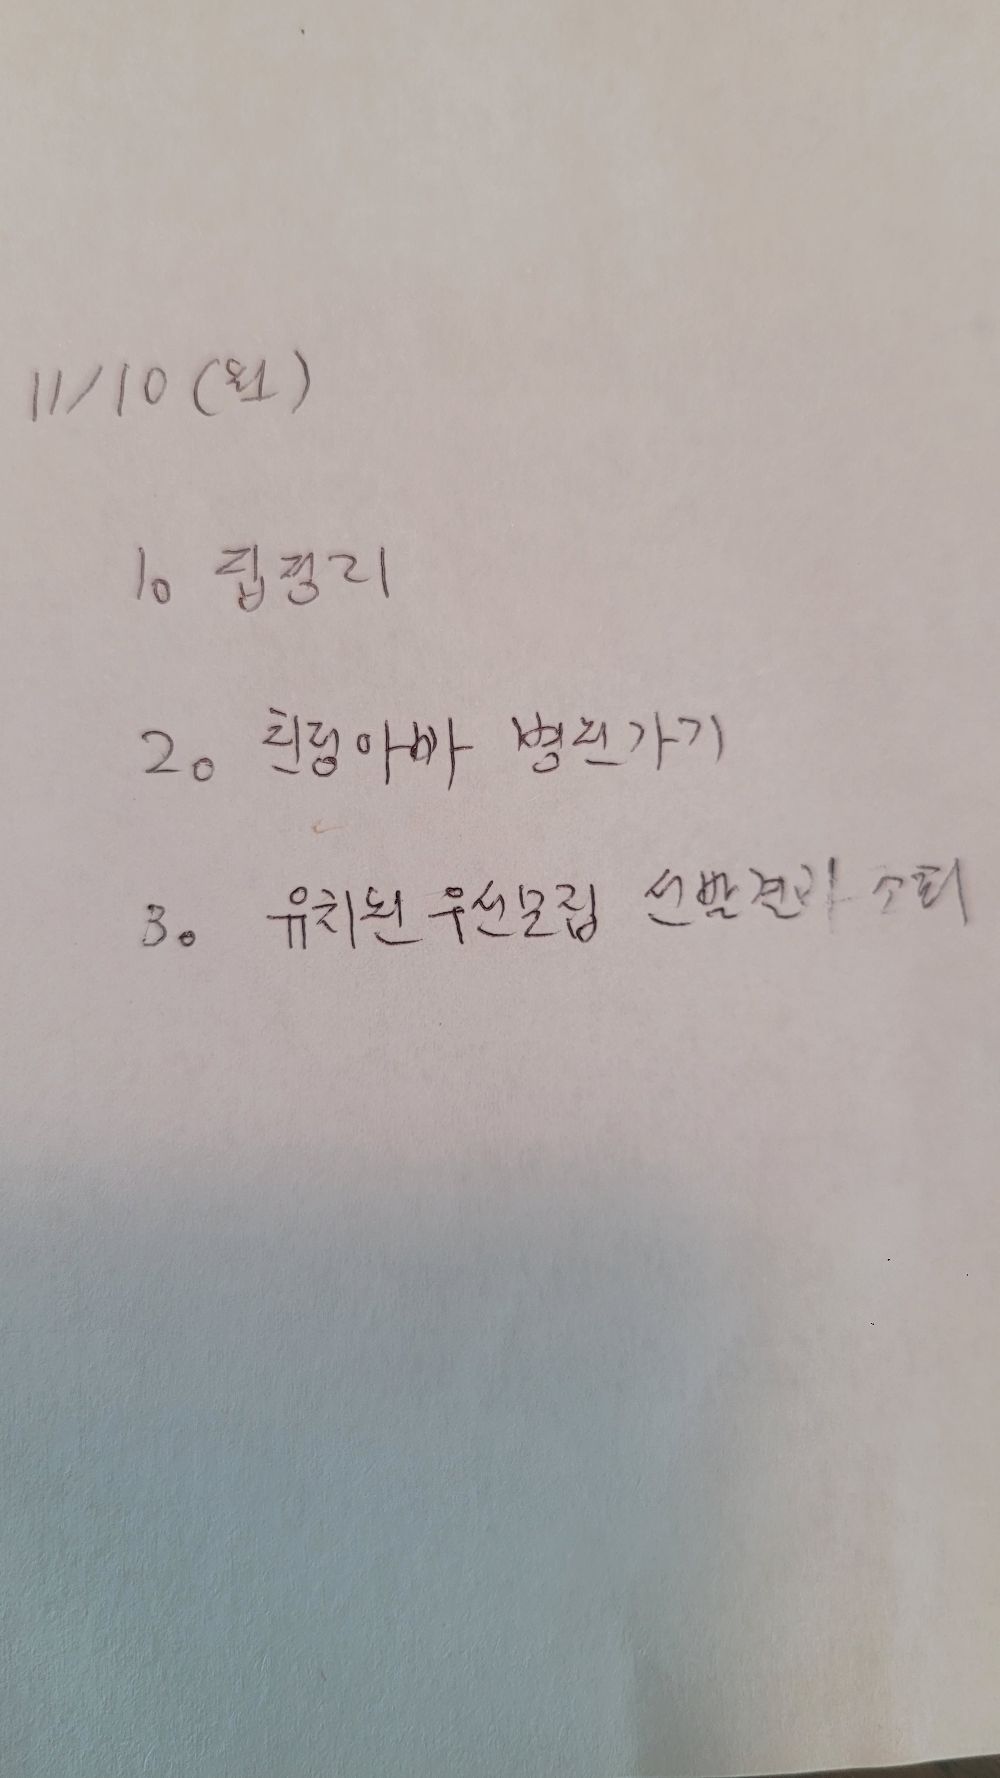 11/10 (월)
1. 집정리
2. 친정아빠 병원가기
3. 유치원 우선모집 선발결과 조회